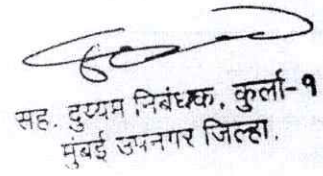 सह. दुय्यम निबंधक, कुर्ला-१
मुंबई उपनगर जिल्हा.